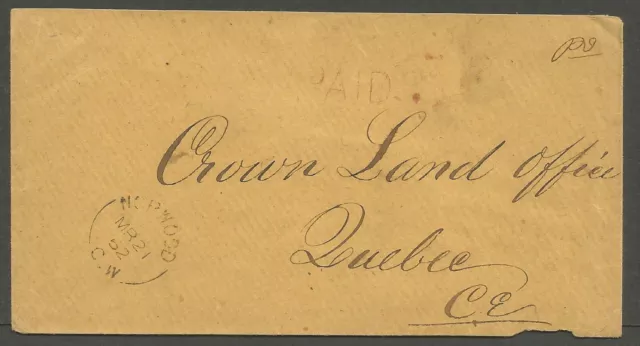 PAID
Crown Land Office
Quebec
C.E
NORWOOD
MR 21
62
C.W